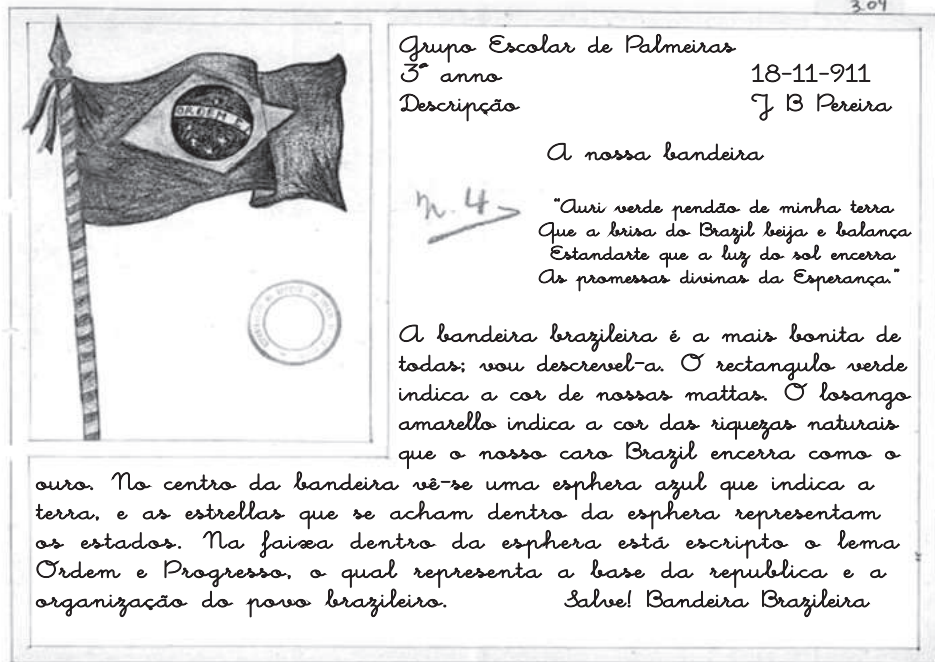 3.04
Grupo Escolar de Palmeiras
3º anno 18-11-911
Descripção J B Pereira
A nossa bandeira
n. 4
"Auri verde pendão de minha terra
Que a brisa do Brazil beija e balança
Estandarte que a luz do sol encerra
As promessas divinas da Esperança."
ORDEM E P
A bandeira brazileira é a mais bonita de
todas; vou descrevel-a. O rectangulo verde
indica a cor de nossas mattas. O losango
amarello indica a cor das riquezas naturais
que o nosso caro Brazil encerra como o
ouro. No centro da bandeira vê-se uma esphera azul que indica a
terra, e as estrellas que se acham dentro da esphera representam
os estados. Na faixa dentro da esphera está escripto o lema
Ordem e Progresso, o qual representa a base da republica e a
organização do povo brazileiro. Salve! Bandeira Brazileira